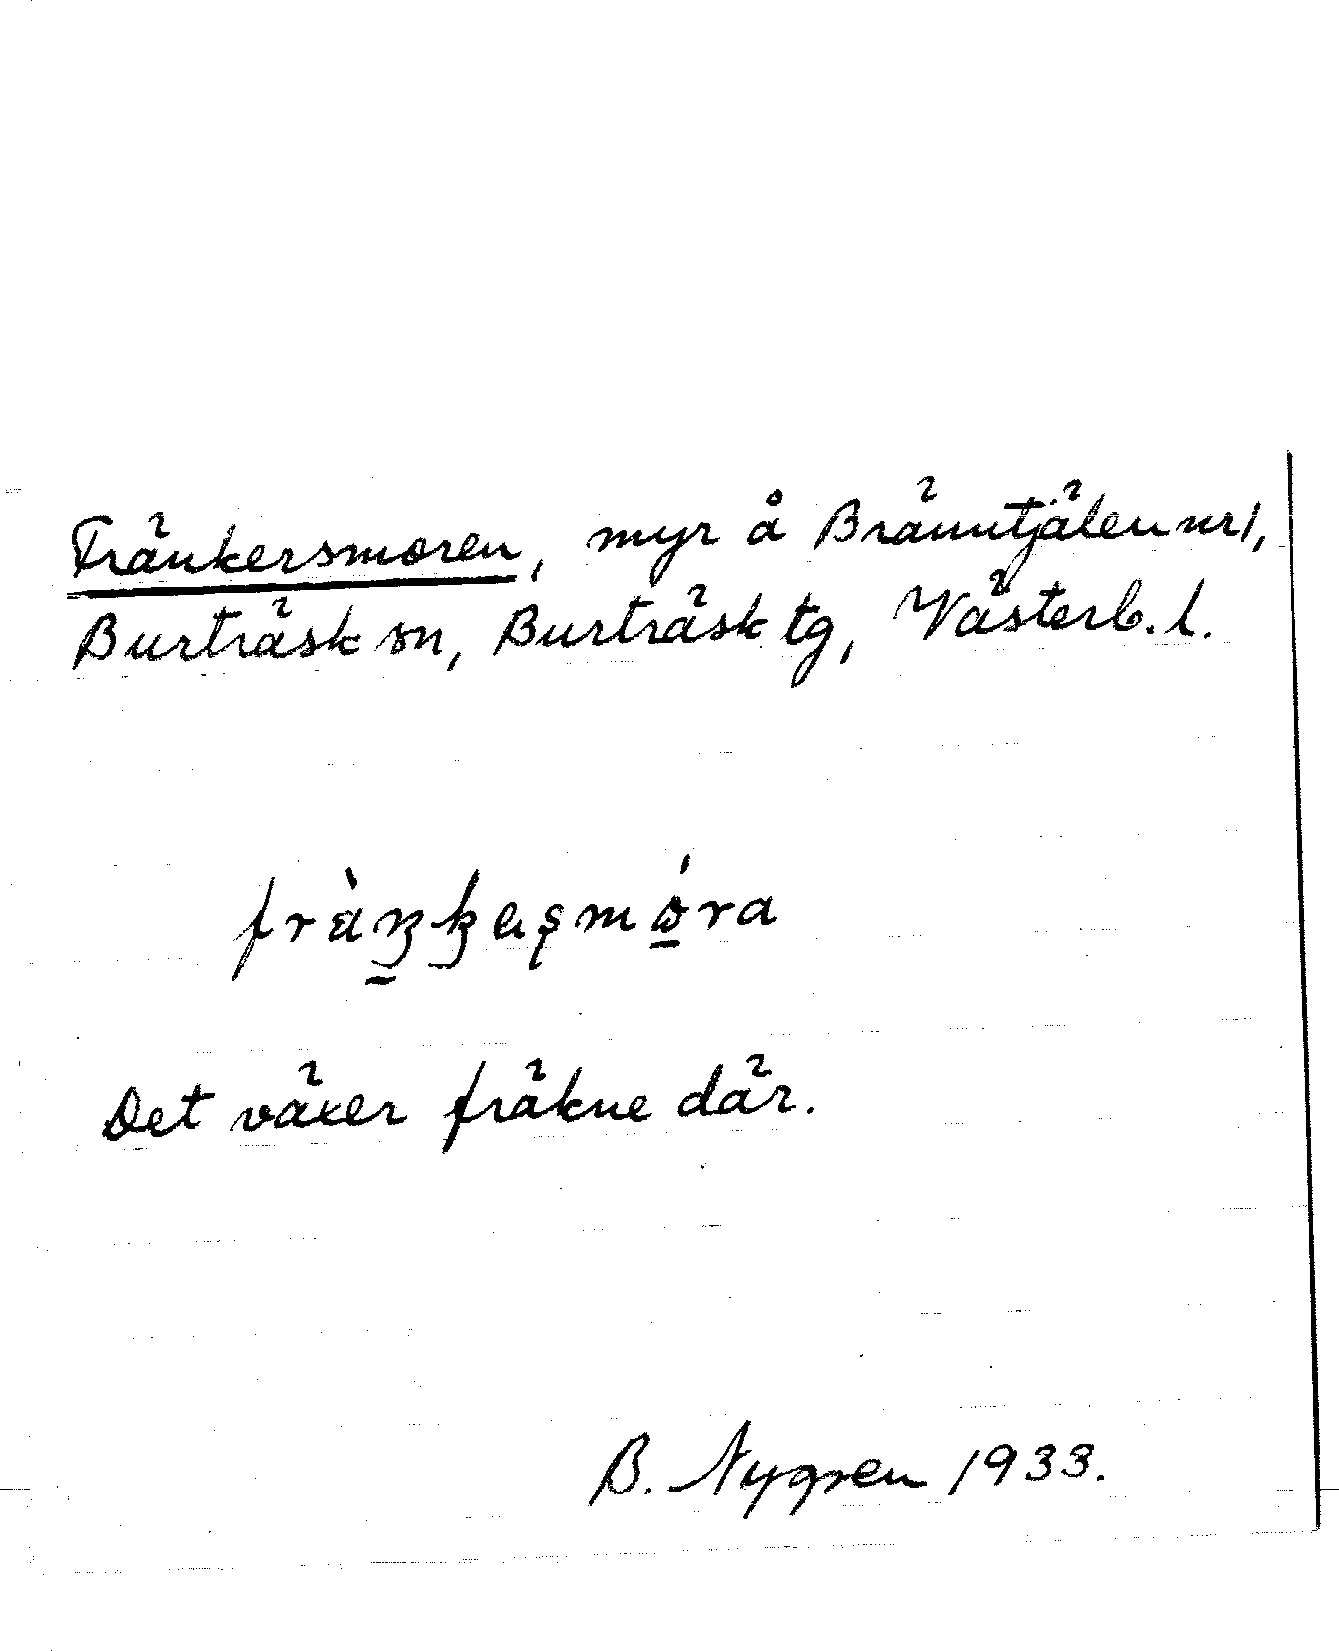 Fränkersmoren, myr å Bränntjälen nr 1,
Burträsk sn, Burträsk tg, Västerb. l.
Det växer fräkne där.
B. Nygren 1933.